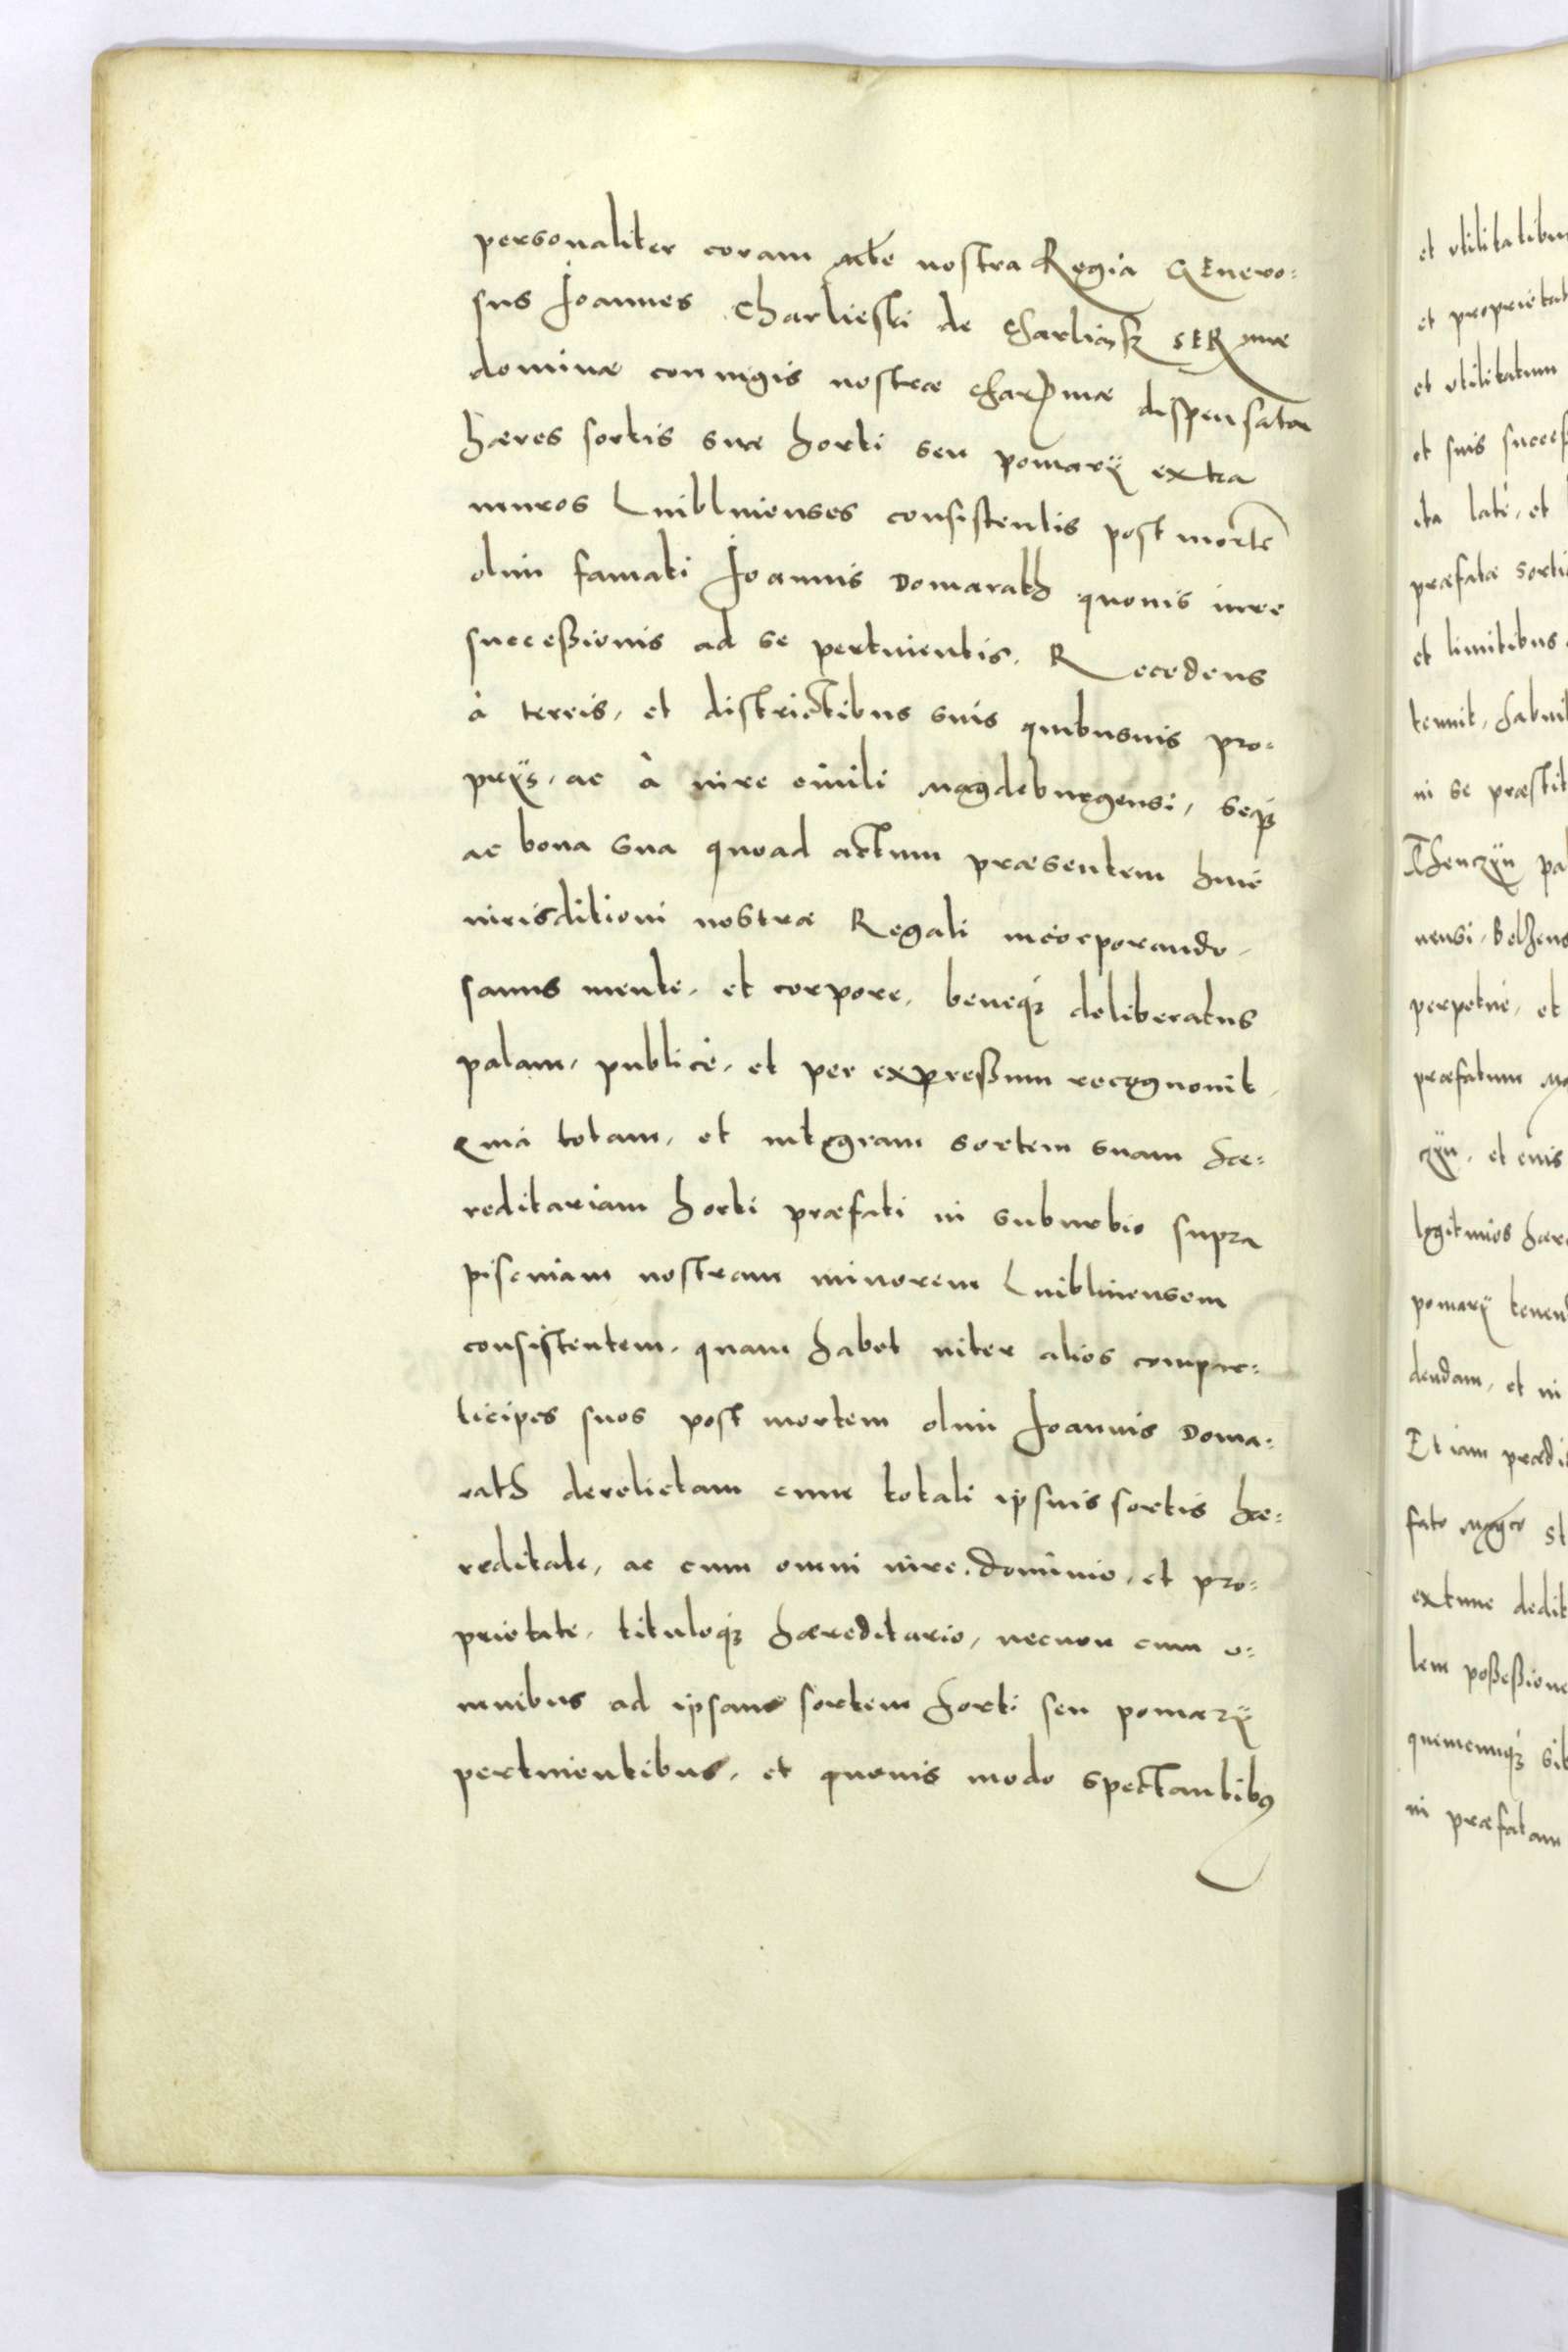 personaliter coram mte nostra Regia GEnero:
sus Joannes Charlieski de Charliąsz SERmae
dominae coniugis nostrae charmae dispensator
haeres sortis suae horti seu pomarÿ extra
muros Lublinenses consistentis post mortē
olim famati Joannis Domarath quovis iure
successionis ad se pertinentis. Recedens
à terris, et districtibus suis quibusuis pro:
prÿs, ac à iure ciuili Magdeburgensi, seqȝ
ac bona sua quoad actum praesentem huic
iurisditioni nostrae Regali incorporando,
sanus mente, et corpore, beneqȝ deliberatus
palam, publicè, et per expressum recognouit,
Quia totam, et integram sortem suam hae:
reditariam horti praefati in suburbio supra
piscinam nostram minorem Lublinensem
consistentem, quam habet inter alios compar:
ticipes suos post mortem olim Joannis Doma:
rath derelictam cum totali ipsius sortis hae:
reditate, ac cum omni iure, dominio, et pro:
prietate, tituloqȝ haereditario, necnon cum o:
mnibus ad ipsam sortem horti seu pomarÿ
pertinentibus, et quouis modo spectantibꝰ
et vtilitatibus
et proprietat
et vtilitatum
et suis success
ita latè, et l
praefatae sortis
et limitibus
tenuit, habuit
in se praestit
Thenczÿn pa
nensi, Belzens
perpetuè, et
praefatum Ma
czÿn, et eius
legitimos haere
pomarÿ tenend
dendam, et in
Et iam praedi
fato Mgco St
extunc dedit
lem possessione
quemcunqȝ sib
in praefatam